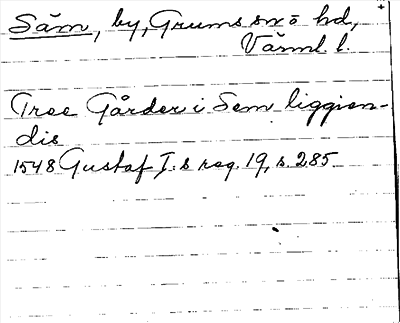 Säm, by, Grums sn o hd,
Värml. l.
Tree Gårder i Sem liggien-
dis
1548 Gustaf I:s reg. 19, s. 285.